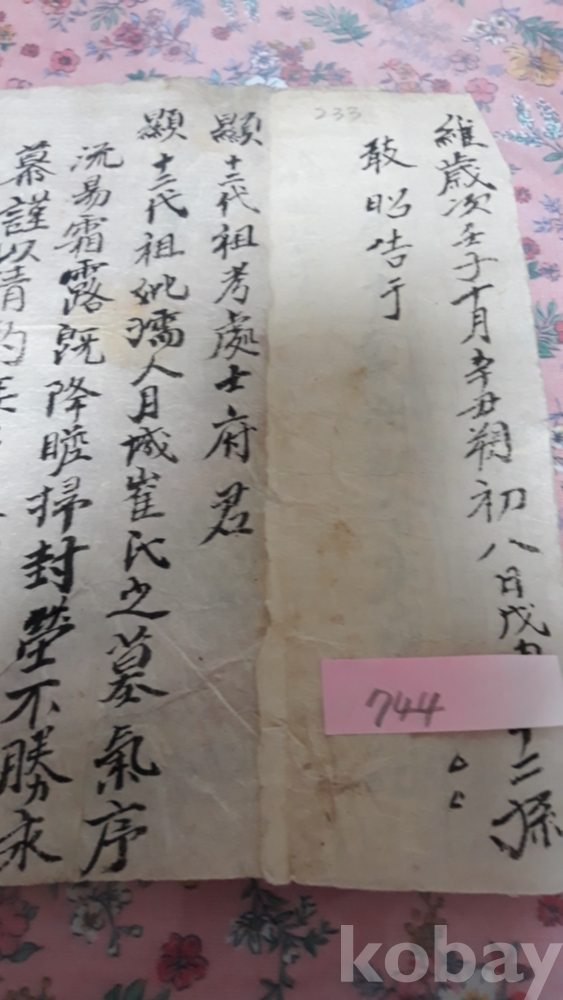 維歲次壬子十月辛丑朔初八日戊 十二孫
敢昭告于
顯十二代祖考處士府君
顯十二代祖妣孺人月城崔氏之墓氣序
流易霜露旣降瞻掃封塋不勝永
慕謹以淸酌
233
744
kobay